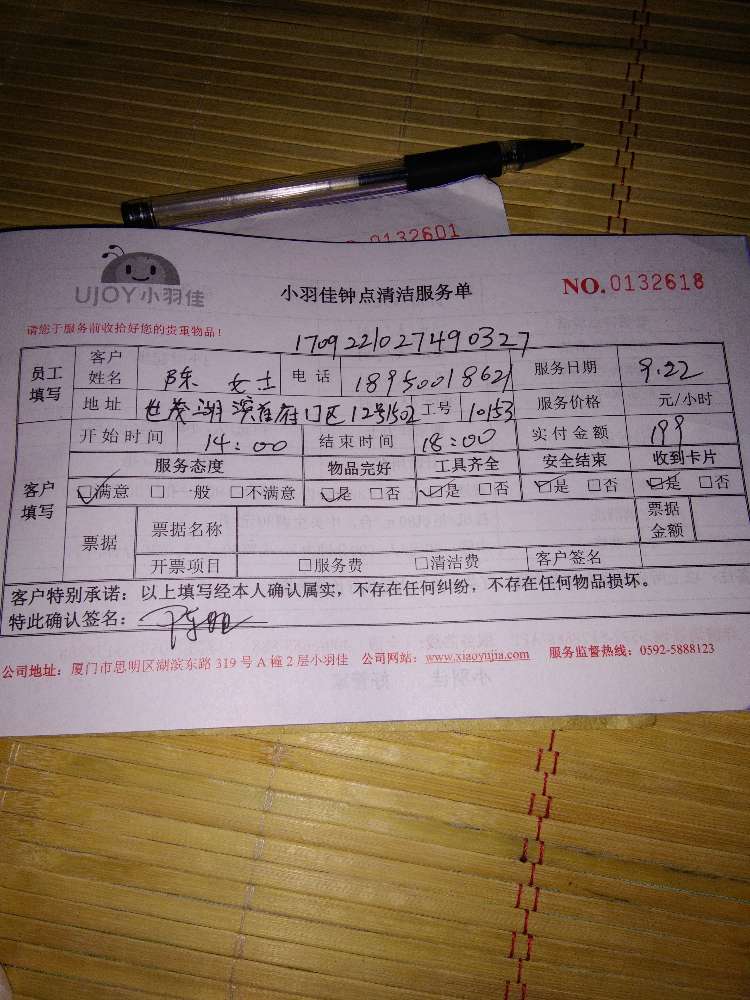 0132601
UJOY小羽佳
小羽佳钟点清洁服务单
NO.0132618
请您于服务前收拾好您的贵重物品！
1709221027490327
员工填写 客户姓名 陈 女士 电话 18950018621 服务日期 9.22
地址 世茂湖滨首府门区12号1502 工号 10153 服务价格 元/小时
客户填写 开始时间 14:00 结束时间 18:00 实付金额 199
服务态度 物品完好 工具齐全 安全结束 收到卡片
☑满意 □一般 □不满意 ☑是 □否 ☑是 □否 ☑是 □否 ☑是 □否
票据 票据名称 票据金额
开票项目 □服务费 □清洁费 客户签名
客户特别承诺：以上填写经本人确认属实，不存在任何纠纷，不存在任何物品损坏。
特此确认签名：
公司地址：厦门市思明区湖滨东路 319 号 A 幢 2 层小羽佳 公司网站：www.xiaoyujia.com 服务监督热线：0592-5888123